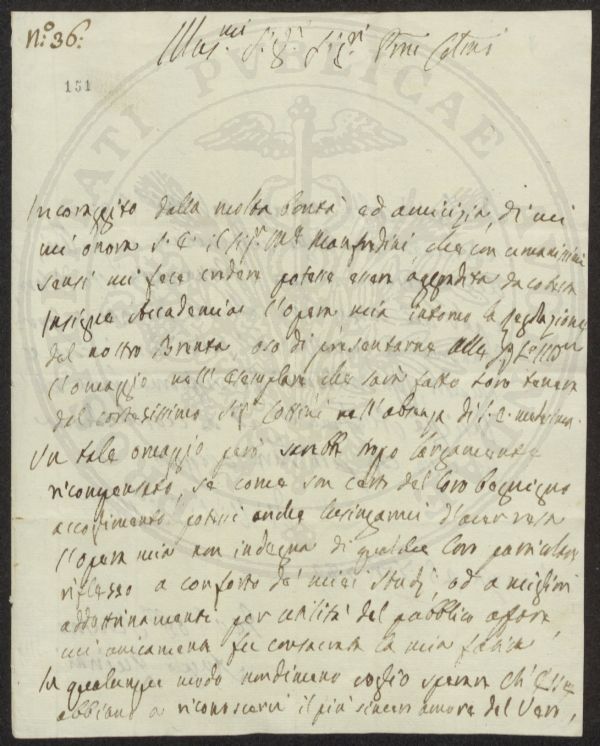 N.º 36:
151
Ill.mi Sig.ri Sig.ri
PUBLICAE
Incoraggito dalla molta bontà ed amicizia, di cui
mi onora S. E. il Sig.r M.e Manfredini, che con umanissimi
sensi mi fece credere potesse essere aggradita da cotesta
Insigne Accademia l'opera mia intorno la regolazione
del nostro Brenta oso di presentarne alle
l'omaggio nell'esemplare che sarà fatto Loro tenere
dal cortesissimo Sig.r nell'absenza di S. E. medesima.
Un tale omaggio però sarebbe troppo largamente
ricompensato, se come son certo del Loro benigno
accoglimento potessi anche lusingarmi d'aver resa
l'opera mia non indegna di qualche Loro particolare
riflesso a conforto de' miei studj, ed a migliori
addottrinamenti per utilità del pubblico
cui unicamente fu consacrata la mia fatica
In qualunque modo nondimeno voglio sperare ch'Esse
abbiano a riconoscervi il più sincero amore del Vero,